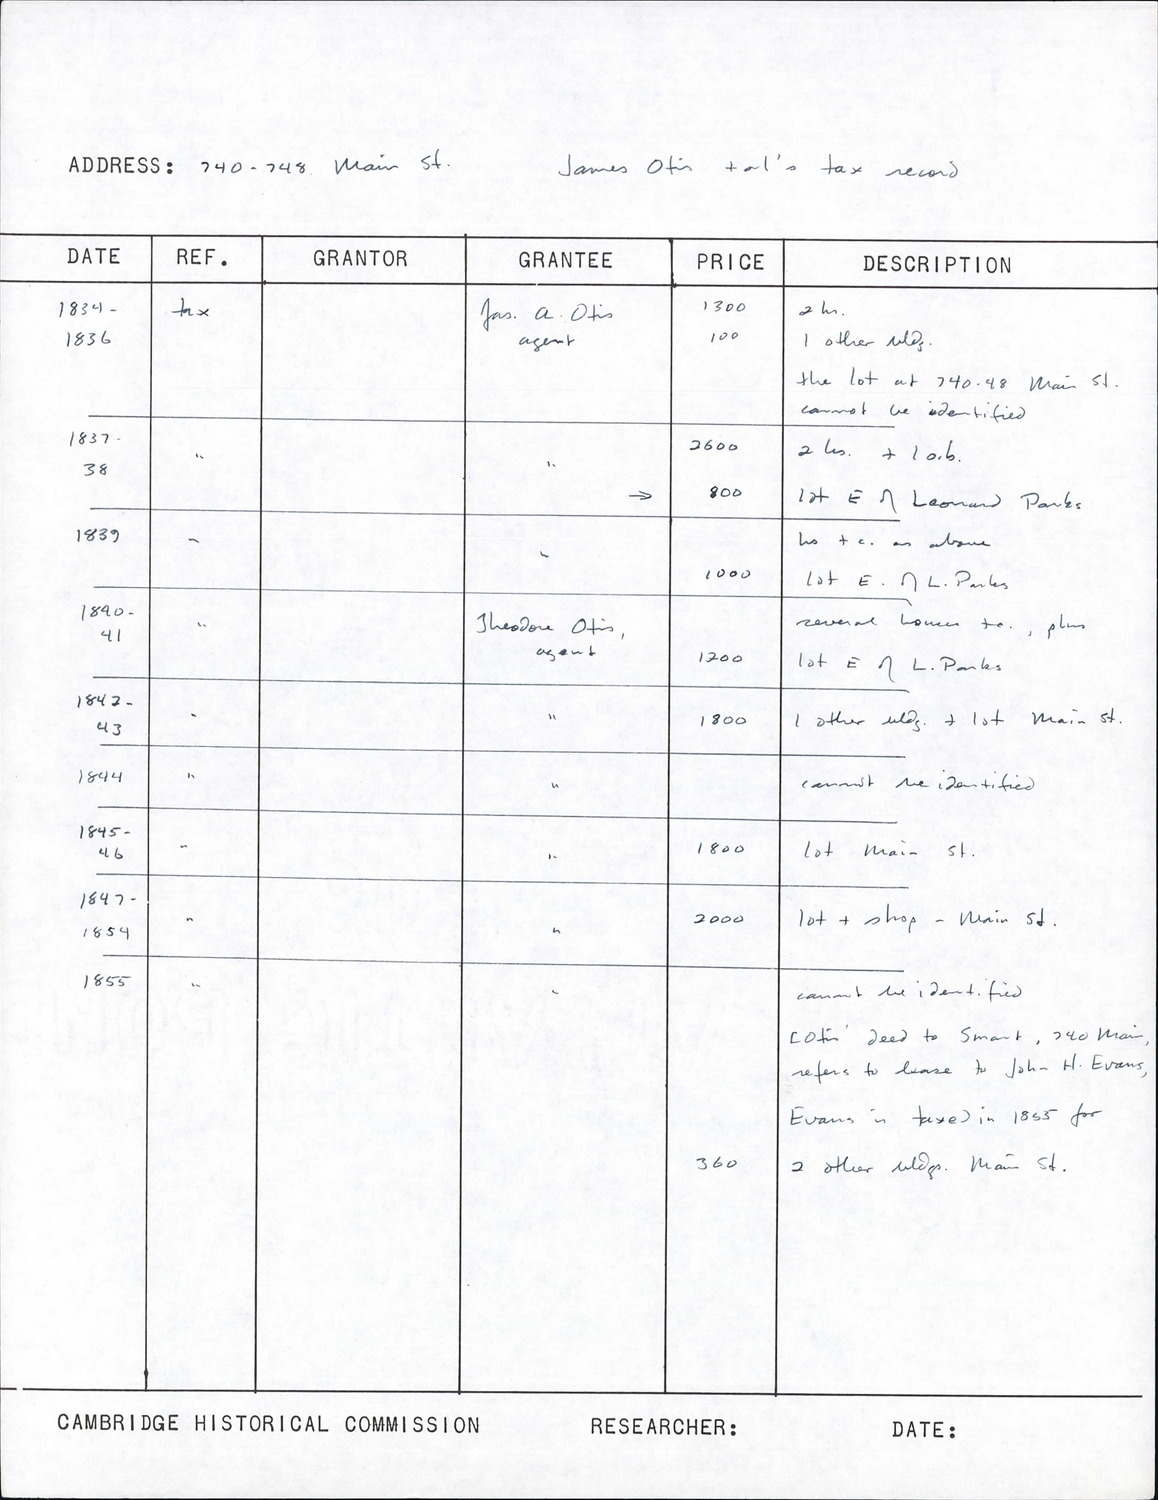 ADDRESS: 740-748 Main St. James Otis + al's tax record
DATE REF. GRANTOR GRANTEE PRICE DESCRIPTION
1834- tax Jas. A. Otis 1300 2 hs.
1836 agent 100 1 other bldg.
the lot at 740-48 Main St.
cannot be identified
1837- 2600 2 hs. + 1 o.b.
38 " "
→ 800 lot E of Leonard Parks
1839 " " hs + c. as above
1000 lot E. of L. Parks
1840- " Theodore Otis, several houses, plus
41 agent 1200 lot E of L. Parks
1842- " " 1800 1 other bldg. + lot Main St.
43
1844 " " cannot be identified
1845- " " 1800 lot Main St.
46
1847- " " 2000 lot + shop - Main St.
1854
1855 " " cannot be identified
[Otis' deed to Smart, 740 Main,
refers to lease to John H. Evans,
Evans is taxed in 1855 for
360 2 other bldgs. Main St.
CAMBRIDGE HISTORICAL COMMISSION RESEARCHER: DATE: